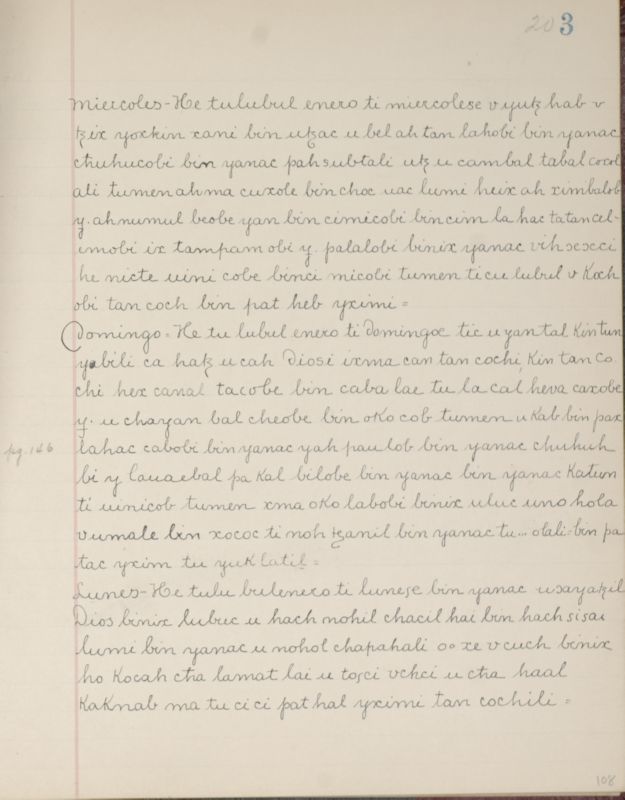 203
Miercoles - He tulubul enero ti miercolese v yutz hab v
tzix yoxkin xani bin utzac u bel ah tan lahobi bin yanac
chuhucobi bin yanac pah subtali utz u cambal tabal coxol
ali tumen ahma cuxole bin choc uac lumi heix ah ximbalob
y. ahnumul beobe yan bin cimicobi bin cim la hac tatancel-
umobi ix tampam obi y. palalobi binix yanac vih
he nicte uini cobe binci micobi tumen ticu lubul v Koch
obi tan coch bin pat heb yximi =
Domingo = He tu lubul enero ti Domingoe tic u yan tal Kintun
yabili ca hatz u cah Diosi ixma can tan cochi, Kin tan co
chi hex canal tacobe bin caba lae tu la cal heva caxobe
y. u chayan bal cheobe bin oKo cob tumen u Kab bin pax
pg. 146
lahac cabobi bin yanac yah pau lob bin yanac chuhuh
bi y lauaebal pa Kal bilobe bin yanac bin yanac Katun
ti uinicob tumen xma oKo labobi binix uluc uno hola
vumale bin xococ ti noh tzanil bin yanac tu... olali = bin pa
tac yxim tu yuKlatil =
Lunes - He tulu bulenero ti lunese bin yanac uxayatzil
Dios binix lubuc u hach nohil chacil hai bin hach sisai
lumi bin yanac u nohol chapahali oo xe v cuch binix
ho Kocah cha lamat lai u tosci vchci u cha haal
KaKnab ma tu ci ci pat hal yximi tan cochili =
108